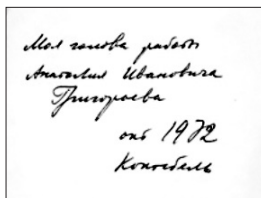 Моя голова работы
Анатолия Ивановича
Григорьева
окт 1972
Коктебель